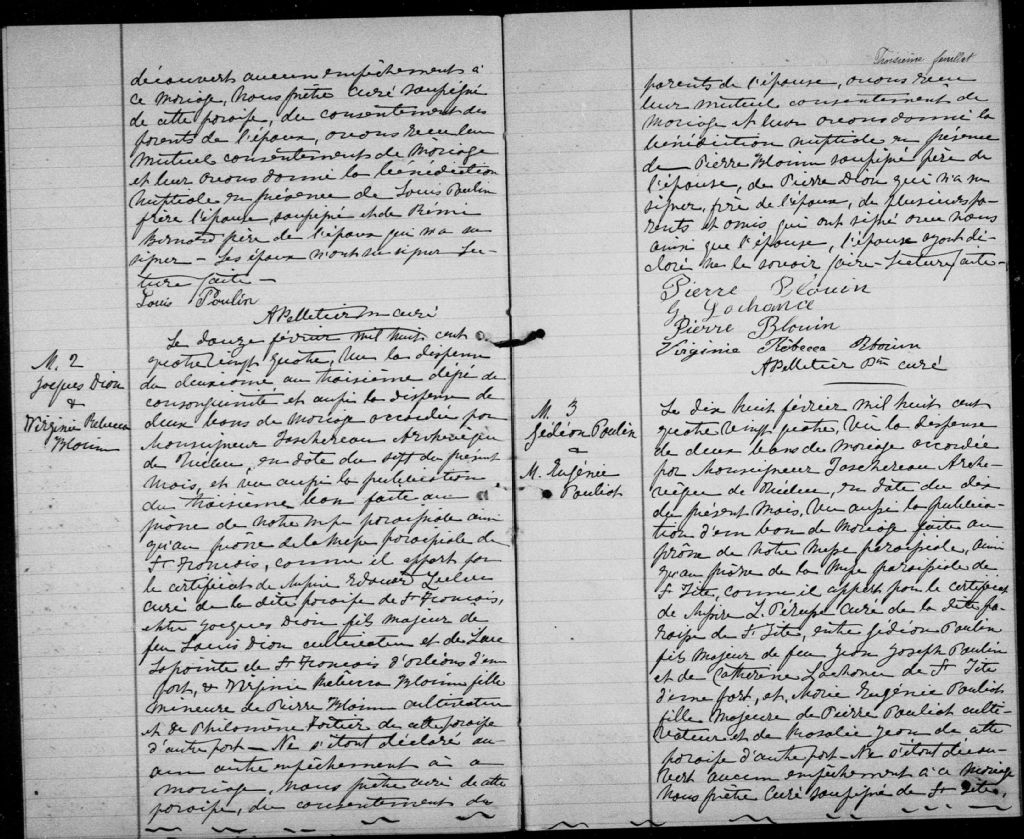 découvert aucun empêchement à
ce mariage, Nous prêtre curé soussigné
de cette paroisse, du consentement des
parents de l'époux, avons reçu leur
mutuel consentement de mariage
et leur avons donné la bénédiction
nuptiale en présence de Louis Paulin
frère l'épouse, soussigné et de Rémi
Bernard père de l'époux qui n'a su
signer - Les époux n'ont su signer Lec-
ture faite -
Louis Poulin
APelletier Ptre curé
M. 2
Jacques Dion
&
Virginie Rebecca
Blouin
Le douze février mil huit cent
quatre vingt quatre, Vu la dispense
du deuxième au troisième degré de
consanguinité et aussi la dispense de
deux bans de mariage accordée par
Monseigneur Taschereau Archevêque
de Québec, en date du sept du présent
mois, et vu aussi la publication
du troisième ban faite au
prône de notre Messe paroissiale ainsi
qu'au prône de la Messe paroissiale de
St François, comme il appert par
le certificat de Messire Edouard Leclerc
curé de la dite paroisse de St François,
entre Jacques Dion fils majeur de
feu Louis Dion cultivateur et de Luce
Lapointe de St François d'orléans d'une
part, & Virginie Rebecca Blouin fille
mineure de Pierre Blouin cultivateur
et de Philomène Fortier de cette paroisse
d'autre part - Ne s'étant déclaré au-
cun autre empêchement à ce
mariage, Nous prêtre curé de cette
paroisse, du consentement des
Troisième feuillet
parents de l'épouse, avons reçu
leur mutuel consentement de
mariage et leur avons donné la
bénédiction nuptiale en présence
de Pierre Blouin soussigné père de
l'épouse, de Pierre Dion qui n'a su
signer, frère de l'époux, de plusieurs pa-
rents et amis qui ont signé avec nous
ainsi que l'épouse, l'époux ayant dé-
claré ne le savoir faire - Lecture faite -
Pierre Blouin
G Lachance
Pierre Blouin
Virginie Rébecca Blouin
APelletier Ptre curé
M. 3
Gédéon Paulin
&
M. Eugénie
Pouliot
Le dix huit février mil huit cent
quatre vingt quatre, Vu la dispense
de deux bans de mariage accordée
par Monseigneur Taschereau Arche-
vêque de Québec, en date du dix
du présent mois, Vu aussi la publica-
tion d'un ban de mariage faite au
prône de notre Messe paroissiale, ainsi
qu'au prône de la Messe paroissiale de
St Tite, comme il appert par le certificat
de Messire L. Pérusse Curé de la dite pa-
roisse de St Tite, entre Gédéon Paulin
fils majeur de feu Jean Joseph Paulin
et de Catherine Lachance de St Tite
d'une part, et, Marie Eugénie Pouliot
fille majeure de Pierre Pouliot culti-
vateur et de Rosalie Jean de cette
paroisse d'autre part - Ne s'étant décou-
vert aucun empêchement à ce mariage
Nous prêtre Curé soussigné de St Tite,